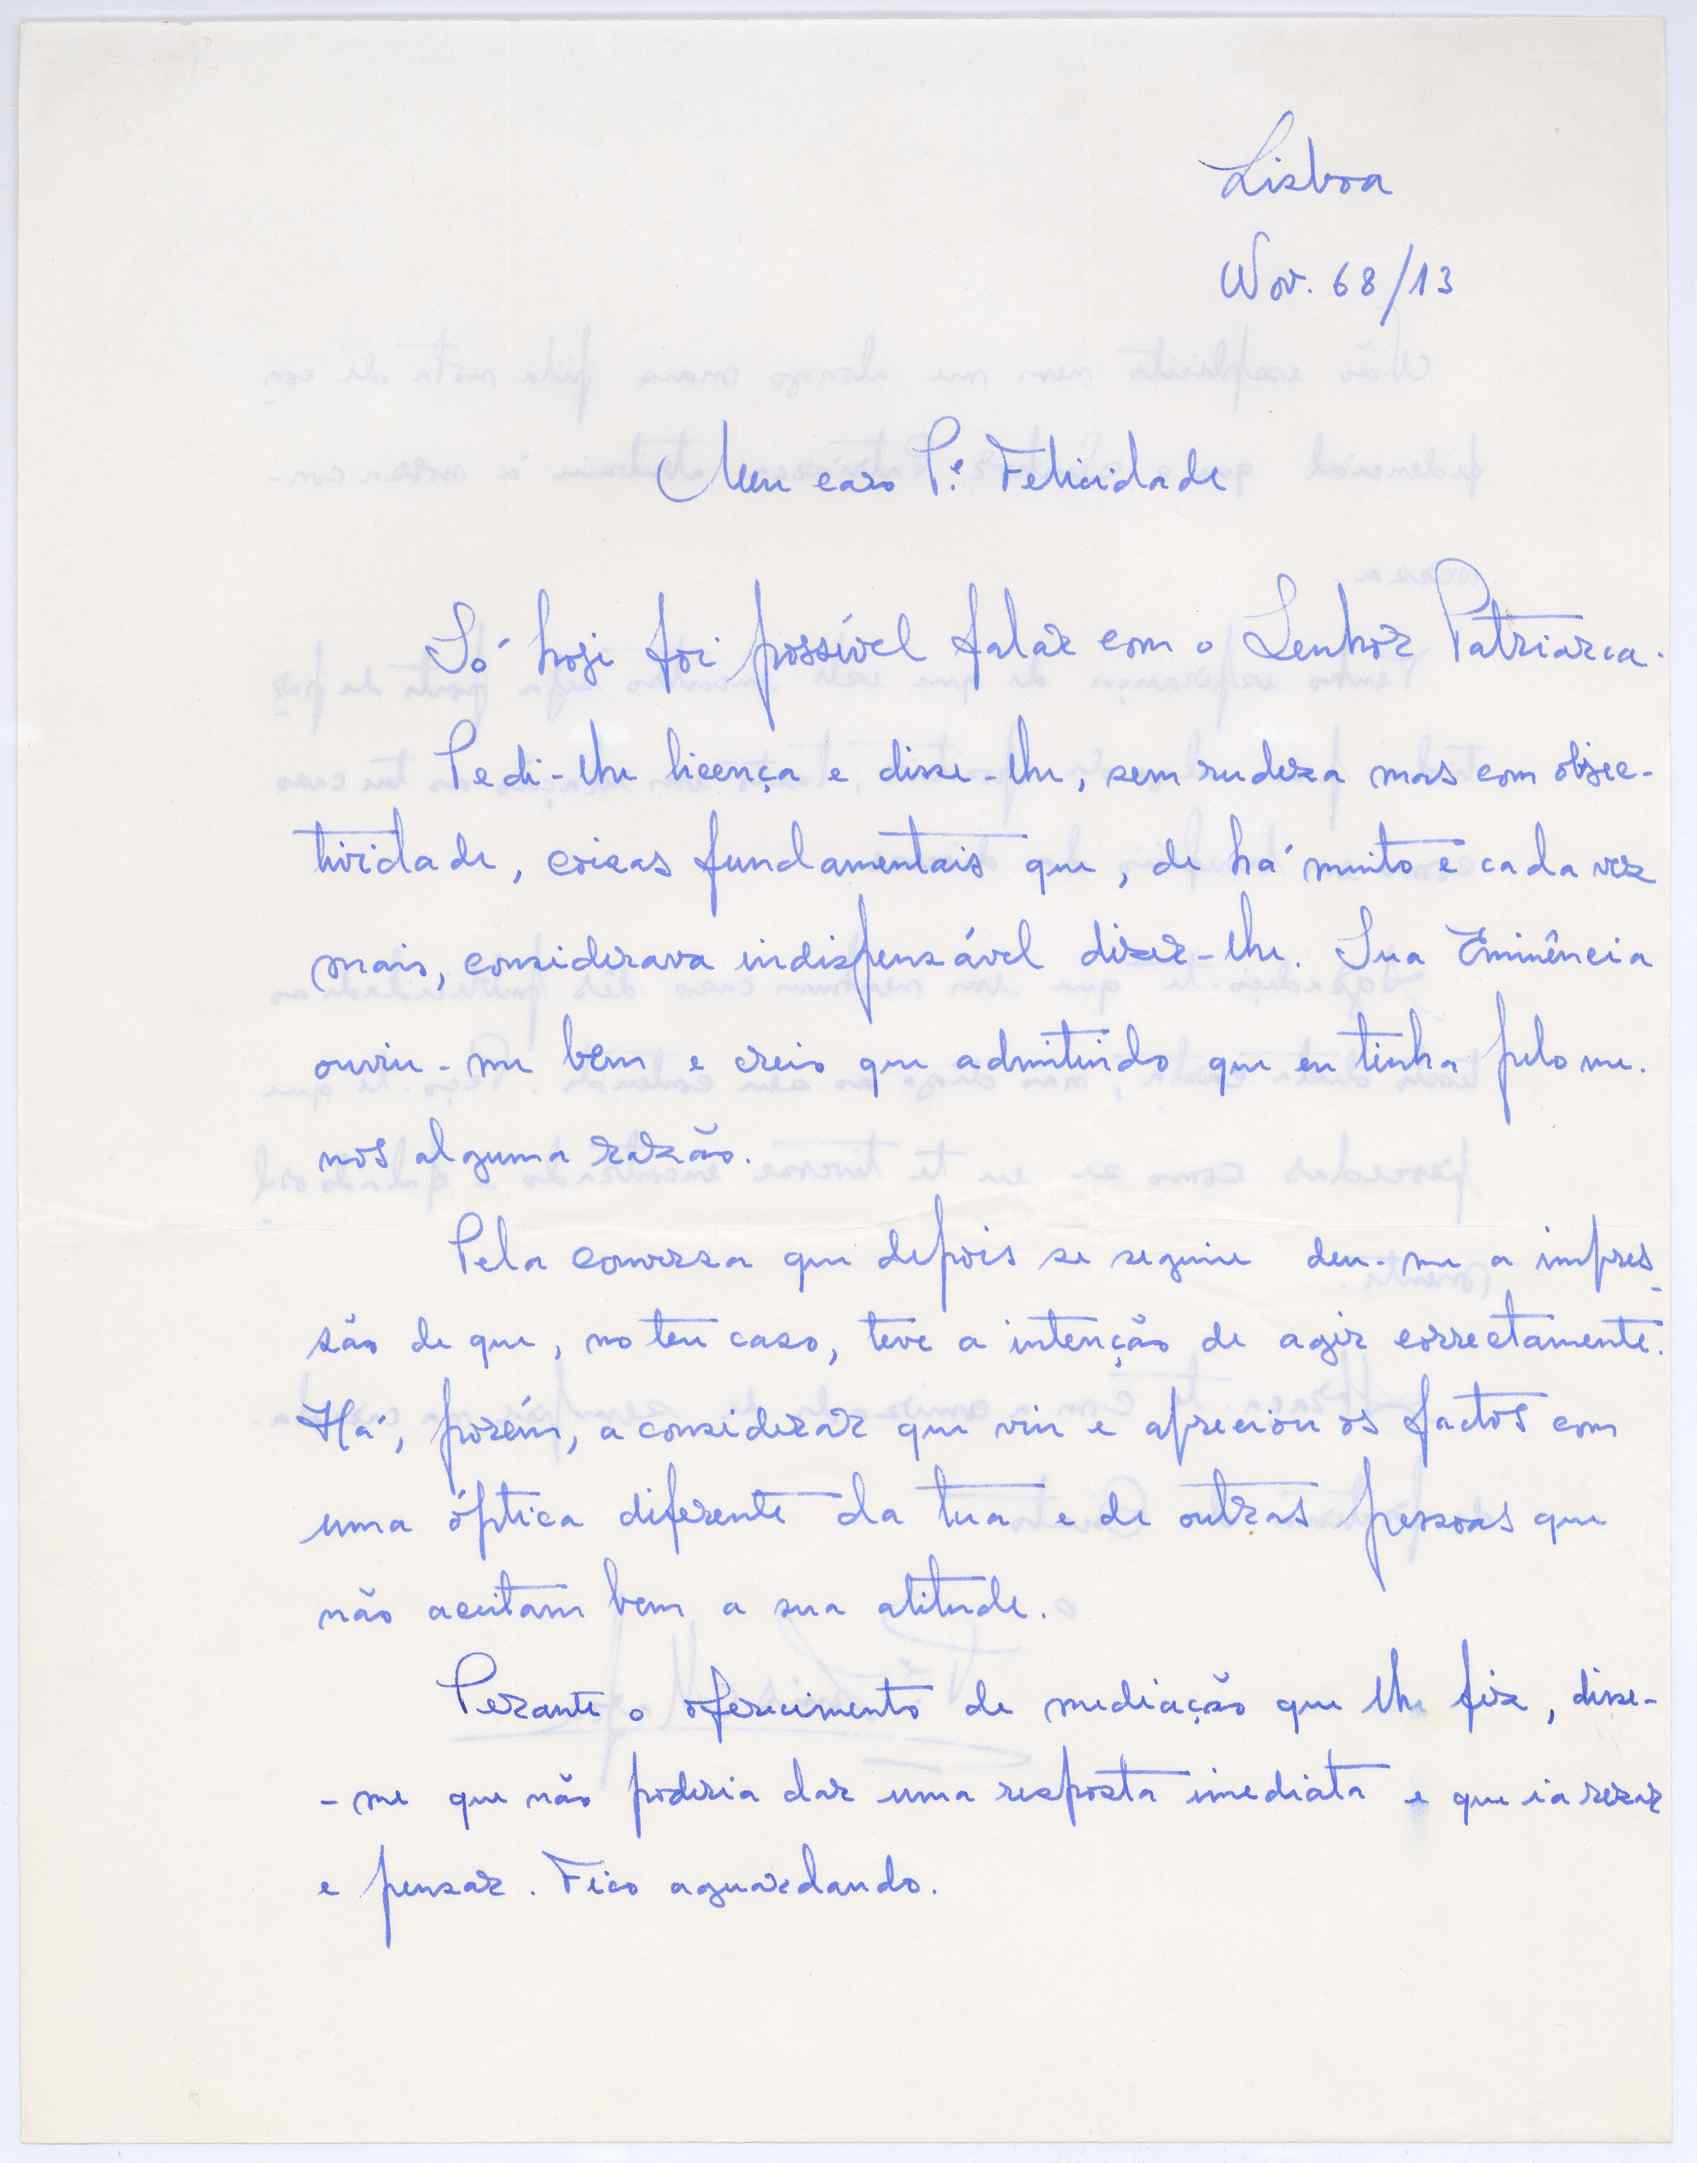 Lisboa
Nov. 68/13
Meu caro P.e Felicidade
Só hoje foi possível falar com o Senhor Patriarca.
Pedi-lhe licença e disse-lhe, sem rudeza mas com objec-
tividade, coisas fundamentais que, de há muito e cada vez
mais, considerava indispensável dizer-lhe. Sua Eminência
ouviu-me bem e creio que admitindo que eu tinha pelo me-
nos alguma razão.
Pela conversa que depois se seguiu deu-me a impres-
são de que, no teu caso, teve a intenção de agir correctamente.
Há, porém, a considerar que viu e apreciou os factos com
uma óptica diferente da tua e de outras pessoas que
não aceitam bem a sua atitude.
Perante o oferecimento de mediação que lhe fiz, disse-
-me que não poderia dar uma resposta imediata e que ia rezar
e pensar. Fico aguardando.